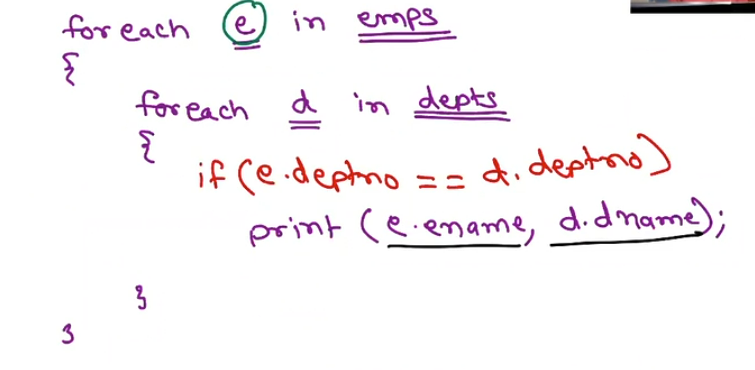 foreach e in emps
{
foreach d in depts
{
if (e.deptno == d.deptno)
print (e.ename, d.dname);
}
}